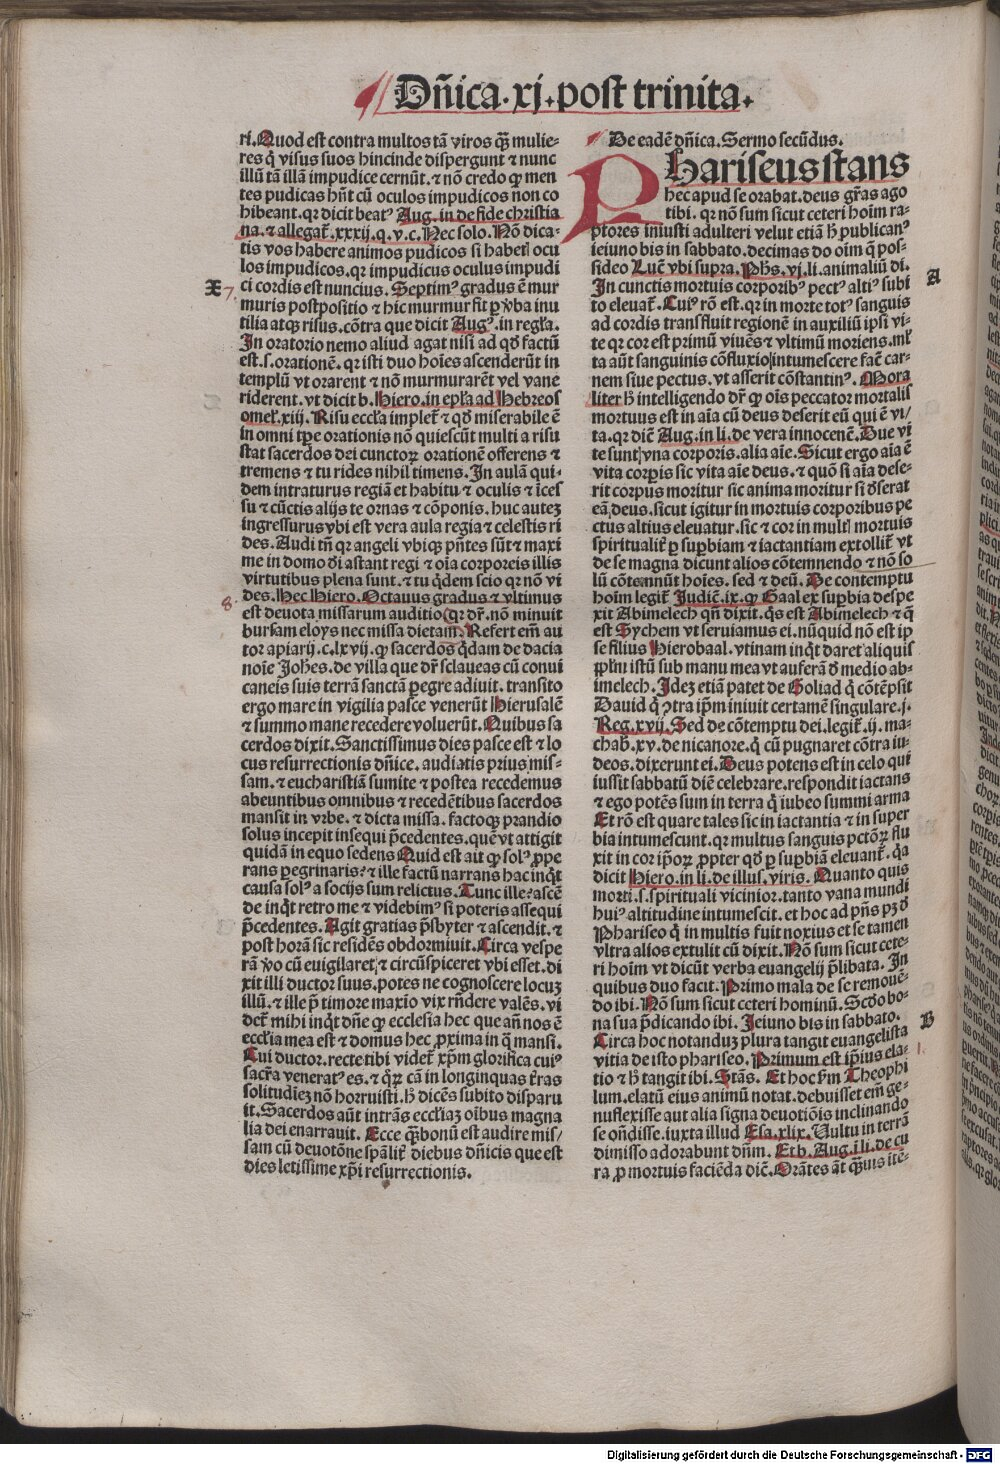 Dñica.xj.post trinita.
ri. Quod est contra multos tā viros q̄ȝ mulie-
res q̇ visus suos hincinde dispergunt ⁊ nunc
illū tā illā impudice cernūt. ⁊ nō credo ꝙ men
tes pudicas hñt cū oculos impudicos non co
hibeant. qꝛ dicit beatꝰ Aug. in de fide christia
na. ⁊ allegat̄. xxxij. q. v. c. Nec solo. Nō dica-
tis vos habere animos pudicos si habetl ocu
los impudicos. qꝛ impudicus oculus impudi
X 7. ci cordis est nuncius. Septimꝰ gradus ē mur
muris postpositio ⁊ hic murmur fit ꝑ v̓ba inu
tilia atqꝫ risus. cōtra que dicit Augꝰ. in regl̓a.
In oratorio nemo aliud agat nisi ad qd̓ factū
est. s. orationē. qꝛ isti duo hoīes ascenderūt in
templū vt orarent ⁊ nō murmurarēt vel vane
riderent. vt dicit b. Hiero. in epl̓a ad Hebreos
omel̓. xiij. Risu eccl̓ia implet̄ ⁊ qd̓ miserabile ē
in omni tp̄e orationis nō quiescūt multi a risu
stat sacerdos dei cunctoꝝ orationē offerens ⁊
tremens ⁊ tu rides nihil timens. In aulā qui-
dem intraturus regiā et habitu ⁊ oculis ⁊ īces
su ⁊ cūctis alijs te ornas ⁊ cōponis. huc auteȝ
ingressurus vbi est vera aula regia ⁊ celestis ri
des. Audi tñ qꝛ angeli vbiqꝫ p̄ntes sūt ⁊ maxi
me in domo d̓i astant regi ⁊ oīa corporeis illis
virtutibus plena sunt. ⁊ tu q̇dem scio qꝛ nō vi
8. des. Hec Hiero. Octauus gradus ⁊ vltimus
est deuota missarum auditio (qꝛ dr̄. nō minuit
bursam eloys nec missa dietam). Refert em̄ au
tor apiarij. c. lxvij. ꝙ sacerdos q̇dam de dacia
noīe Joh̓es. de villa que dr̄ sclaueas cū conui
caneis suis terrā sanctā ꝑegre adiuit. transito
ergo mare in vigilia pasce venerūt Hierusalē
⁊ summo mane recedere voluerūt. Quibus sa
cerdos dixit. Sanctissimus dies pasce est ⁊ lo
cus resurrectionis dñice. audiatis prius mis-
sam. ⁊ eucharistiā sumite ⁊ postea recedemus
abeuntibus omnibus ⁊ recedētibus sacerdos
mansit in vrbe. ⁊ dicta missa. factoqꝫ prandio
solus incepit insequi p̄cedentes. quē vt attigit
quidā in equo sedens Quid est ait ꝙ solꝰ ꝓpe
rans ꝑegrinaris? ⁊ ille factū narrans hac inq̇t
causa solꝰ a socijs sum relictus. Tunc ille? ascē
de inq̇t retro me ⁊ videbimꝰ si poteris assequi
p̄cedentes. Agit gratias p̄sbyter ⁊ ascendit. ⁊
post horā sic residēs obdormiuit. Circa vespe
rā v̓o cū euigilaret ⁊ circūspiceret vbi esset. di
xit illi ductor suus. potes ne cognoscere locuȝ
illū. ⁊ ille p̄ timore maxīo vix rn̄dere valēs. vi
det̄ mihi inq̇t dñe ꝙ ecclesia hec que añ nos ē
eccl̓ia mea est ⁊ domus hec ꝓxima in q̇ mansi.
Cui ductor. recte tibi videt̄ xp̄m glorifica cuiꝰ
sacr̄a veneratꝰ es. ⁊ q̇ꝝ cā in longinquas t̄ras
solitudīeȝ nō horruisti. h̓ dicēs subito disparu
it. Sacerdos aūt intrās eccl̓iaȝ oībus magna
lia dei enarrauit. Ecce q̄ȝ bonū est audire mis/
sam cū deuotōne sp̄alit̄ diebus dñicis que est
dies letissime xp̄i resurrectionis.
De eadē dñica. Sermo secūdus.
Phariseus stans
hec apud se orabat. deus gr̄as ago
tibi. qꝛ nō sum sicut ceteri hoīm ra-
ptores iniusti adulteri velut etiā h̓ publicanꝰ
ieiuno bis in sabbato. decimas do oīm q̄ pos-
sideo Luc̄ vbi supra. Ph̓s. vj. li. animaliū di.
A In cunctis mortuis corporibꝰ pectꝰ altiꝰ subi
to eleuat̄. Cuiꝰ rō est. qꝛ in morte totꝰ sanguis
ad cordis transfluit regionē in auxiliū ipsi vi-
te qꝛ cor est primū viuēs ⁊ vltimū moriens. ml̓
ta aūt sanguinis cōfluxio intumescere fac̄ car-
nem siue pectus. vt asserit cōstantinꝰ. Mora
liter h̓ intelligendo dr̄ ꝙ oīs peccator mortalis
mortuus est in aīa cū deus deserit eū qui ē vi/
ta. qꝛ dic̄ Aug. in li. de vera innocen̄. Due vi
te sunt vna corporis. alia aīe. Sicut ergo aīa ē
vita corꝑis sic vita aīe deus. ⁊ quō si aīa dese-
rit corpus moritur sic anima moritur si d̓serat
eā deus. sicut igitur in mortuis corporibus pe
ctus altius eleuatur. sic ⁊ cor in multl mortuis
spiritualit̄ ꝑ suꝑbiam ⁊ iactantiam extollit̄ vt
de se magna dicunt alios cōtemnendo ⁊ nō so
lū cōtemnūt hoīes. sed ⁊ deū. De contemptu
hoīm legit̄ Judic̄. ix. ꝙ Gaal ex suꝑbia despe
xit Abimelech qñ dixit. q̇s est Abimelech ⁊ q̄
est Sychem vt seruiamus ei. nūquid nō est ip
se filius Hierobaal. vtinam inq̇t daret aliquis
ppl̓m istū sub manu mea vt auferā d̓ medio ab-
imelech. Jdeȝ etiā patet de Goliad q̇ cōtēpsit
Dauid q̇ ꝯtra ip̄m iniuit certamē singulare. j.
Reg. xvij. Sed de cōtemptu dei. legit̄. ij. ma-
chab̓. xv. de nicanore. q̇ cū pugnaret cōtra iu-
deos. dixerunt ei. Deus potens est in celo qui
iussit sabbatū diē celebrare. respondit iactans
⁊ ego potēs sum in terra q̇ iubeo summi arma
Et rō est quare tales sic in iactantia ⁊ in super
bia intumescunt. qꝛ multus sanguis pctōꝝ flu
xit in cor ip̄oꝝ ꝓpter qd̓ ꝑ suꝑbiā eleuant̄. q̇a
dicit Hiero. in li. de illus. viris. Quanto quis
morti. s. spirituali vicinior. tanto vana mundi
huiꝰ altitudine intumescit. et hoc ad p̄ns pȝ d̓
Phariseo q̇ in multis fuit noxius et se tamen
vltra alios extulit cū dixit. Nō sum sicut cete-
ri hoīm vt dicūt verba euangelij p̄libata. In
quibus duo facit. Primo mala de se remouē-
do ibi. Nō sum sicut ceteri hominū. Scd̓o bo-
na sua p̄dicando ibi. Ieiuno bis in sabbato.
B Circa hoc notanduȝ plura tangit euangelista
1. vitia de isto phariseo. Primum est ip̄ius ela-
tio ⁊ h̓ tangit ibi. Stās. Et hoc s̓m Theophi
lum. elatū eius animū notat. debuisset em̄ ge-
nuflexisse aut alia signa deuotiōis inclinando
se oñdisse. iuxta illud Esa. xlix. Vultu in terrā
dimisso adorabunt dñm. Et b. Aug. i li. de cu
ra ꝓ mortuis faciēda dic̄. Orātes añt q̄ȝuis itē-
Digitalisierung gefördert durch die Deutsche Forschungsgemeinschaft - DFG